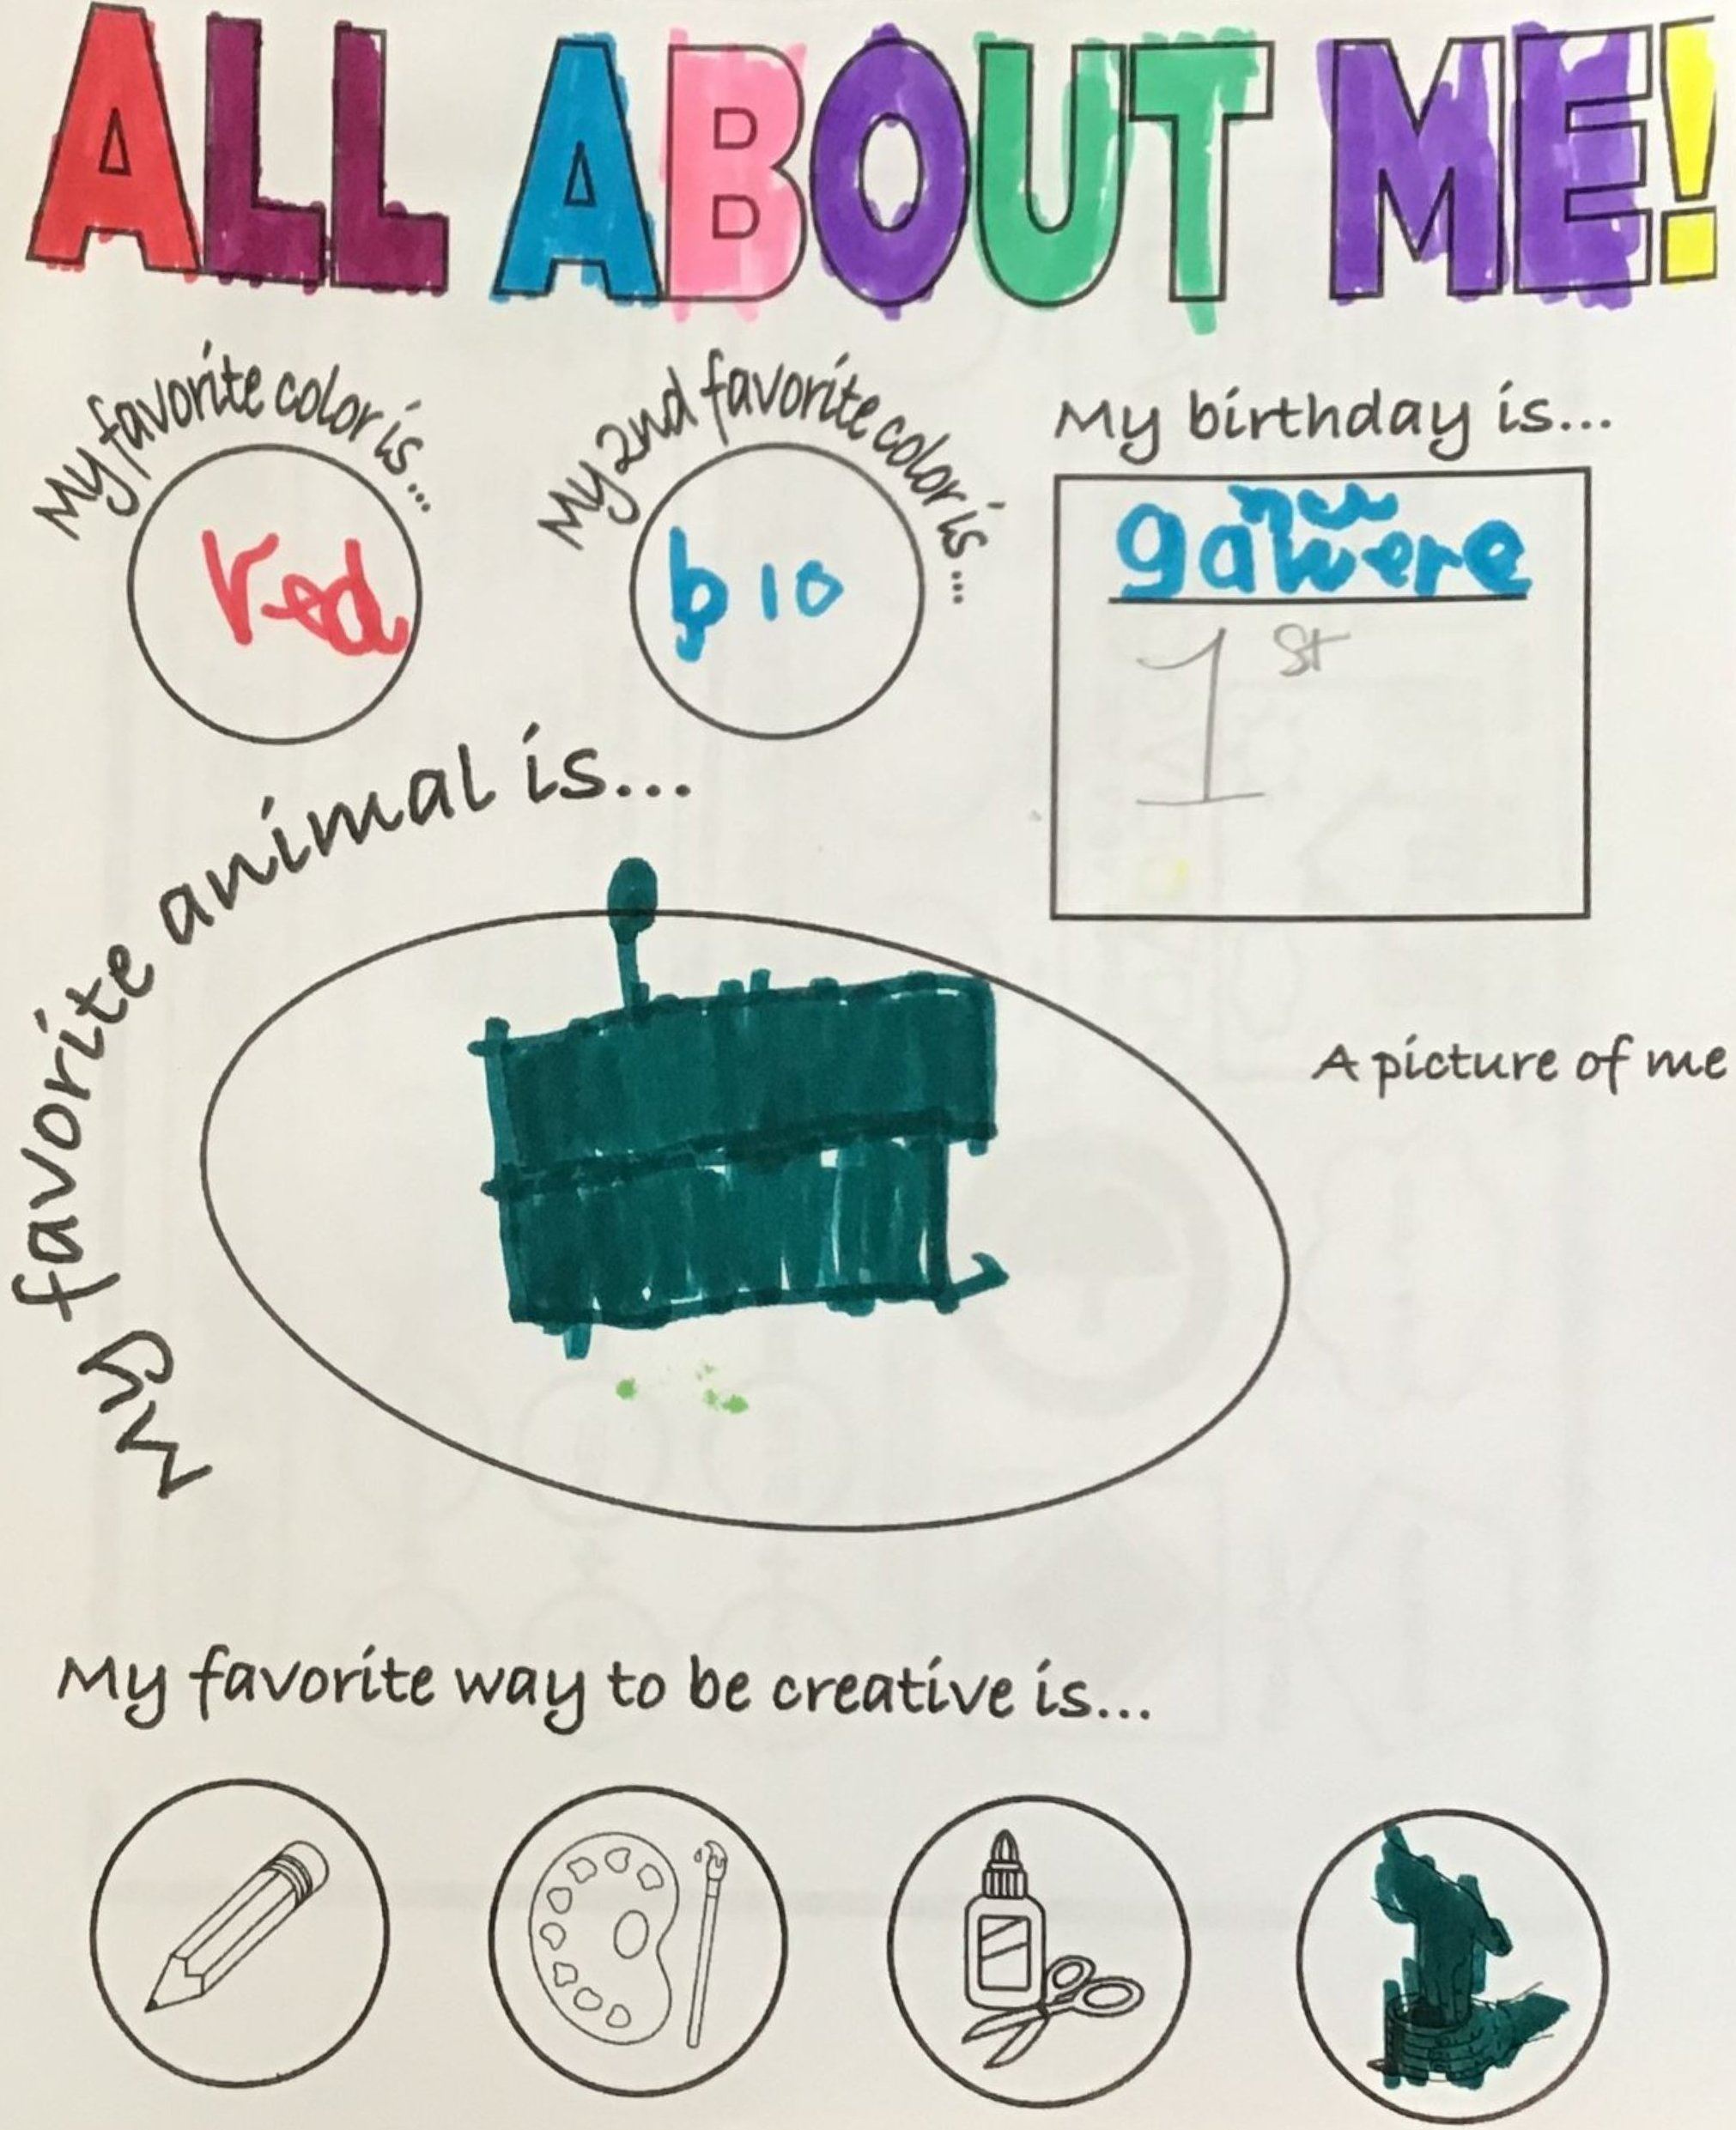 ALL ABOUT ME!
My favorite color is...
red
My 2nd favorite color is...
blo
My birthday is...
1st
My favorite animal is...
A picture of me
My favorite way to be creative is...